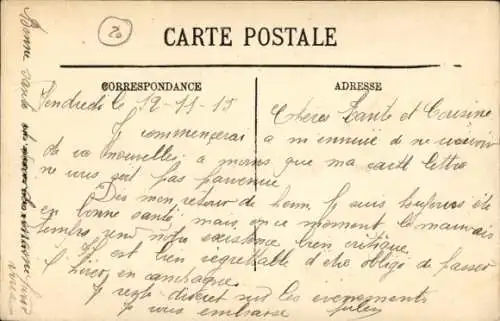 20
CARTE POSTALE
CORRESPONDANCE
ADRESSE
Vendredi le 19-11-15
Cheres Tante et Cousine
Je commencerai a m'ennuié de ne recevoir
de vos nouvelles, a moins que ma carte lettre
ne vous soit pas parvenue
Dès mon retour de Je suis toujours été
en bonne santé, mais, en ce moment le mauvais
temps rend notre existence bien critique
Il est bien regrettable d'etre obligé de passer
l'hiver en campagne.
Je reste discret sur les évènements
Je vous embrasse Jules
Bonne santé